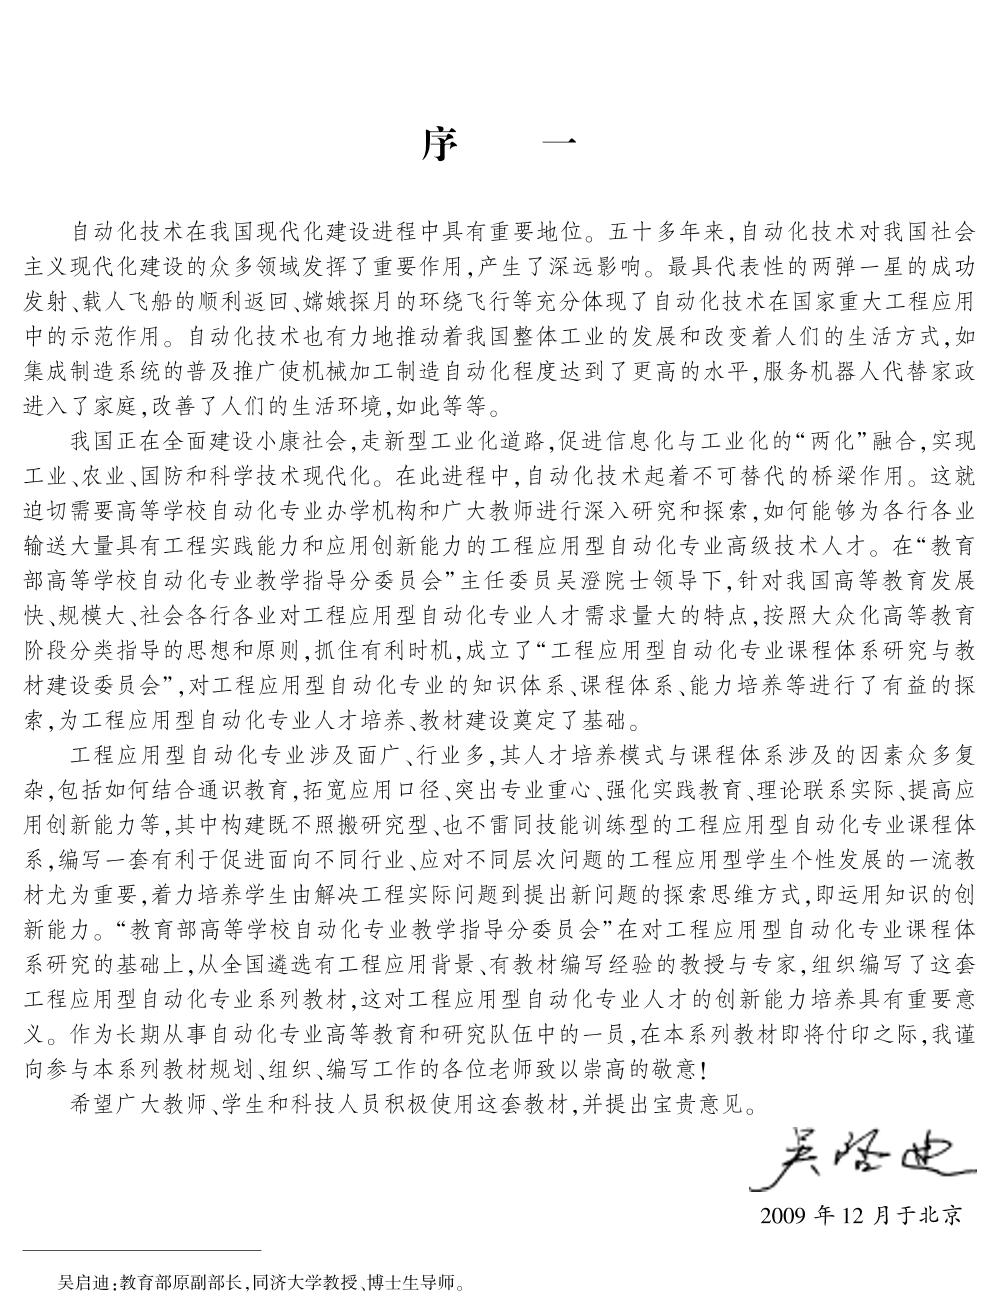 序　一
自动化技术在我国现代化建设进程中具有重要地位。五十多年来,自动化技术对我国社会
主义现代化建设的众多领域发挥了重要作用,产生了深远影响。最具代表性的两弹一星的成功
发射、载人飞船的顺利返回、嫦娥探月的环绕飞行等充分体现了自动化技术在国家重大工程应用
中的示范作用。自动化技术也有力地推动着我国整体工业的发展和改变着人们的生活方式,如
集成制造系统的普及推广使机械加工制造自动化程度达到了更高的水平,服务机器人代替家政
进入了家庭,改善了人们的生活环境,如此等等。
我国正在全面建设小康社会,走新型工业化道路,促进信息化与工业化的“两化”融合,实现
工业、农业、国防和科学技术现代化。在此进程中,自动化技术起着不可替代的桥梁作用。这就
迫切需要高等学校自动化专业办学机构和广大教师进行深入研究和探索,如何能够为各行各业
输送大量具有工程实践能力和应用创新能力的工程应用型自动化专业高级技术人才。在“教育
部高等学校自动化专业教学指导分委员会”主任委员吴澄院士领导下,针对我国高等教育发展
快、规模大、社会各行各业对工程应用型自动化专业人才需求量大的特点,按照大众化高等教育
阶段分类指导的思想和原则,抓住有利时机,成立了“工程应用型自动化专业课程体系研究与教
材建设委员会”,对工程应用型自动化专业的知识体系、课程体系、能力培养等进行了有益的探
索,为工程应用型自动化专业人才培养、教材建设奠定了基础。
工程应用型自动化专业涉及面广、行业多,其人才培养模式与课程体系涉及的因素众多复
杂,包括如何结合通识教育,拓宽应用口径、突出专业重心、强化实践教育、理论联系实际、提高应
用创新能力等,其中构建既不照搬研究型、也不雷同技能训练型的工程应用型自动化专业课程体
系,编写一套有利于促进面向不同行业、应对不同层次问题的工程应用型学生个性发展的一流教
材尤为重要,着力培养学生由解决工程实际问题到提出新问题的探索思维方式,即运用知识的创
新能力。“教育部高等学校自动化专业教学指导分委员会”在对工程应用型自动化专业课程体
系研究的基础上,从全国遴选有工程应用背景、有教材编写经验的教授与专家,组织编写了这套
工程应用型自动化专业系列教材,这对工程应用型自动化专业人才的创新能力培养具有重要意
义。作为长期从事自动化专业高等教育和研究队伍中的一员,在本系列教材即将付印之际,我谨
向参与本系列教材规划、组织、编写工作的各位老师致以崇高的敬意!
希望广大教师、学生和科技人员积极使用这套教材,并提出宝贵意见。
吴启迪
2009 年 12 月于北京
吴启迪:教育部原副部长,同济大学教授、博士生导师。